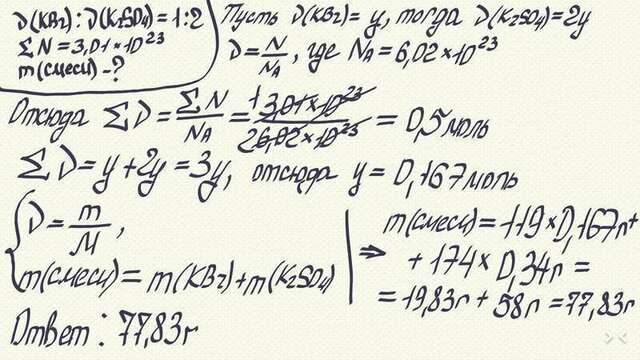 ν(KBr):ν(K₂SO₄)=1:2
ΣN=3,01×10²³
m(смеси)-?
Пусть ν(KBr)=y, тогда ν(K₂SO₄)=2y
ν=N/NA, где NA=6,02×10²³
Отсюда Σν=ΣN/NA=¹3,01×10²³/²6,02×10²³=0,5моль
Σν=y+2y=3y, отсюда y=0,167моль
{ν=m/M,
m(смеси)=m(KBr)+m(K₂SO₄)
⇒ m(смеси)=119×0,167г+
+174×0,34г=
=19,83г+58г=77,83г
Ответ: 77,83г